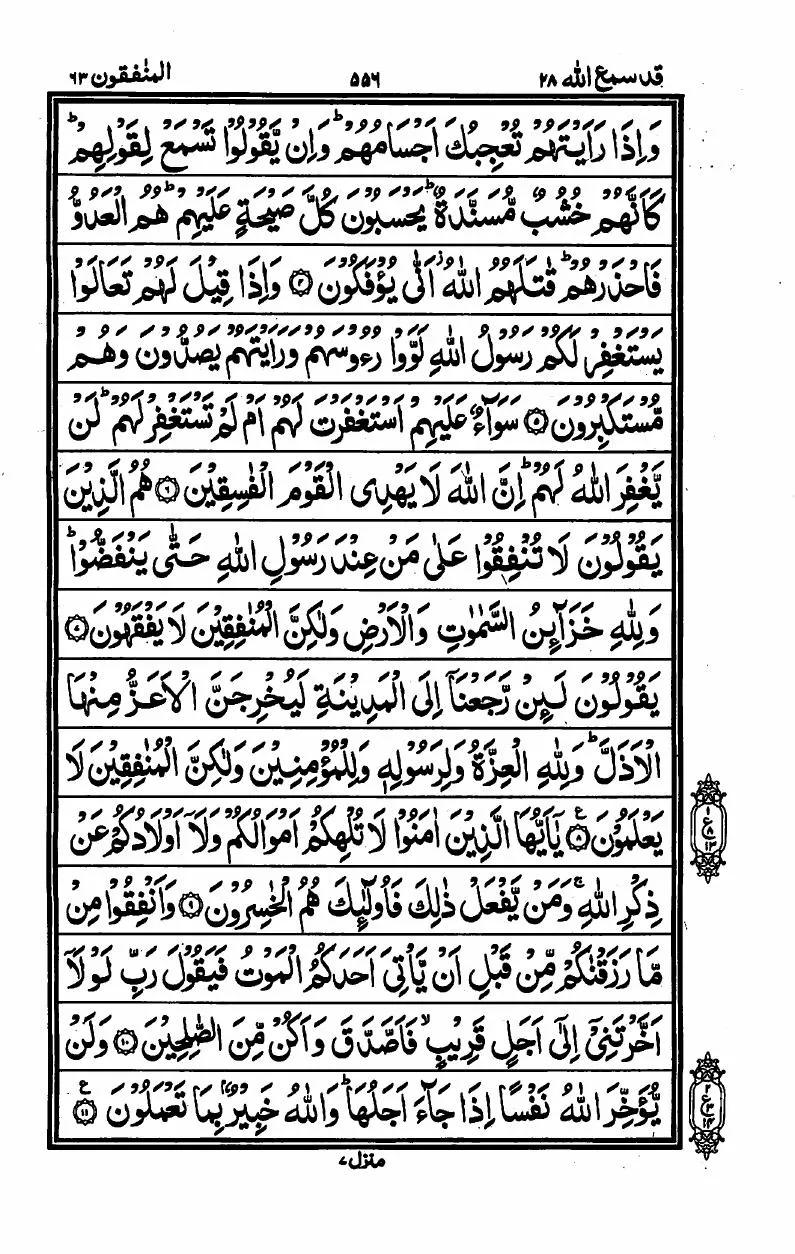 قد سمع الله ٢٨
٥٥٦
المنٰفقون ٦٣
وَاِذَا رَاَيْتَهُمْ تُعْجِبُكَ اَجْسَامُهُمْ ؕ وَاِنْ يَّقُوْلُوْا تَسْمَعْ لِقَوْلِهِمْ ؕ
كَاَنَّهُمْ خُشُبٌ مُّسَنَّدَةٌ ؕ يَحْسَبُوْنَ كُلَّ صَيْحَةٍ عَلَيْهِمْ ؕ هُمُ الْعَدُوُّ
فَاحْذَرْهُمْ ؕ قٰتَلَهُمُ اللّٰهُ ۫ اَنّٰى يُؤْفَكُوْنَ ۝۴ وَاِذَا قِيْلَ لَهُمْ تَعَالَوْا
يَسْتَغْفِرْ لَكُمْ رَسُوْلُ اللّٰهِ لَوَّوْا رُءُوْسَهُمْ وَرَاَيْتَهُمْ يَصُدُّوْنَ وَهُمْ
مُّسْتَكْبِرُوْنَ ۝۵ سَوَآءٌ عَلَيْهِمْ اَسْتَغْفَرْتَ لَهُمْ اَمْ لَمْ تَسْتَغْفِرْ لَهُمْ ؕ لَنْ
يَّغْفِرَ اللّٰهُ لَهُمْ ؕ اِنَّ اللّٰهَ لَا يَهْدِى الْقَوْمَ الْفٰسِقِيْنَ ۝۶ هُمُ الَّذِيْنَ
يَقُوْلُوْنَ لَا تُنْفِقُوْا عَلٰى مَنْ عِنْدَ رَسُوْلِ اللّٰهِ حَتّٰى يَنْفَضُّوْا ؕ
وَلِلّٰهِ خَزَآئِنُ السَّمٰوٰتِ وَالْاَرْضِ وَلٰكِنَّ الْمُنٰفِقِيْنَ لَا يَفْقَهُوْنَ ۝۷
يَقُوْلُوْنَ لَئِنْ رَّجَعْنَاۤ اِلَى الْمَدِيْنَةِ لَيُخْرِجَنَّ الْاَعَزُّ مِنْهَا
الْاَذَلَّ ؕ وَلِلّٰهِ الْعِزَّةُ وَلِرَسُوْلِهٖ وَلِلْمُؤْمِنِيْنَ وَلٰكِنَّ الْمُنٰفِقِيْنَ لَا
يَعْلَمُوْنَ ۝۸ ع يٰۤاَيُّهَا الَّذِيْنَ اٰمَنُوْا لَا تُلْهِكُمْ اَمْوَالُكُمْ وَلَاۤ اَوْلَادُكُمْ عَنْ
ذِكْرِ اللّٰهِ ۚ وَمَنْ يَّفْعَلْ ذٰلِكَ فَاُولٰٓئِكَ هُمُ الْخٰسِرُوْنَ ۝۹ وَاَنْفِقُوْا مِنْ
مَّا رَزَقْنٰكُمْ مِّنْ قَبْلِ اَنْ يَّاْتِىَ اَحَدَكُمُ الْمَوْتُ فَيَقُوْلَ رَبِّ لَوْلَاۤ
اَخَّرْتَنِىْۤ اِلٰٓى اَجَلٍ قَرِيْبٍ ۙ فَاَصَّدَّقَ وَاَكُنْ مِّنَ الصّٰلِحِيْنَ ۝۱۰ وَلَنْ
يُّؤَخِّرَ اللّٰهُ نَفْسًا اِذَا جَآءَ اَجَلُهَا ؕ وَاللّٰهُ خَبِيْرٌۢ بِمَا تَعْمَلُوْنَ ۝۱۱ ع
۱
ع
۸
۱۳
۲
ع
۳
۱۴
منزل ۷